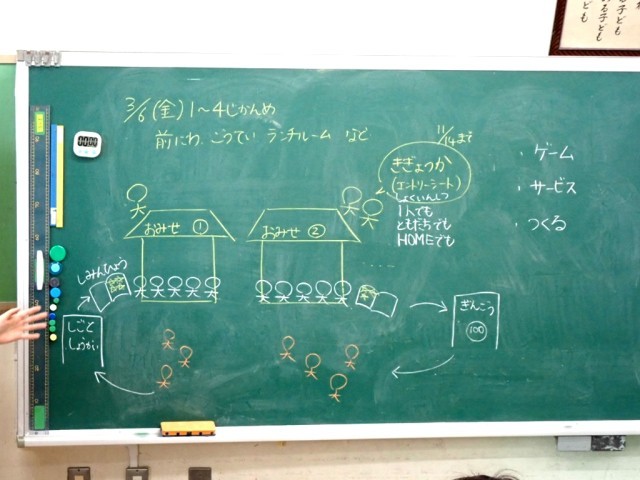 3/6(金)1～4じかんめ
前にわ、こうてい ランチルーム など
11/14まで
きぎょうか
(エントリーシート)
しょくいんしつ
1人でも
ともだちでも
HOMEでも
・ゲーム
・サービス
・つくる
おみせ ①
おみせ ②
しみんしょう
しごと
しょうかい
ぎんこう
100
る子ども
のる子ども
ども